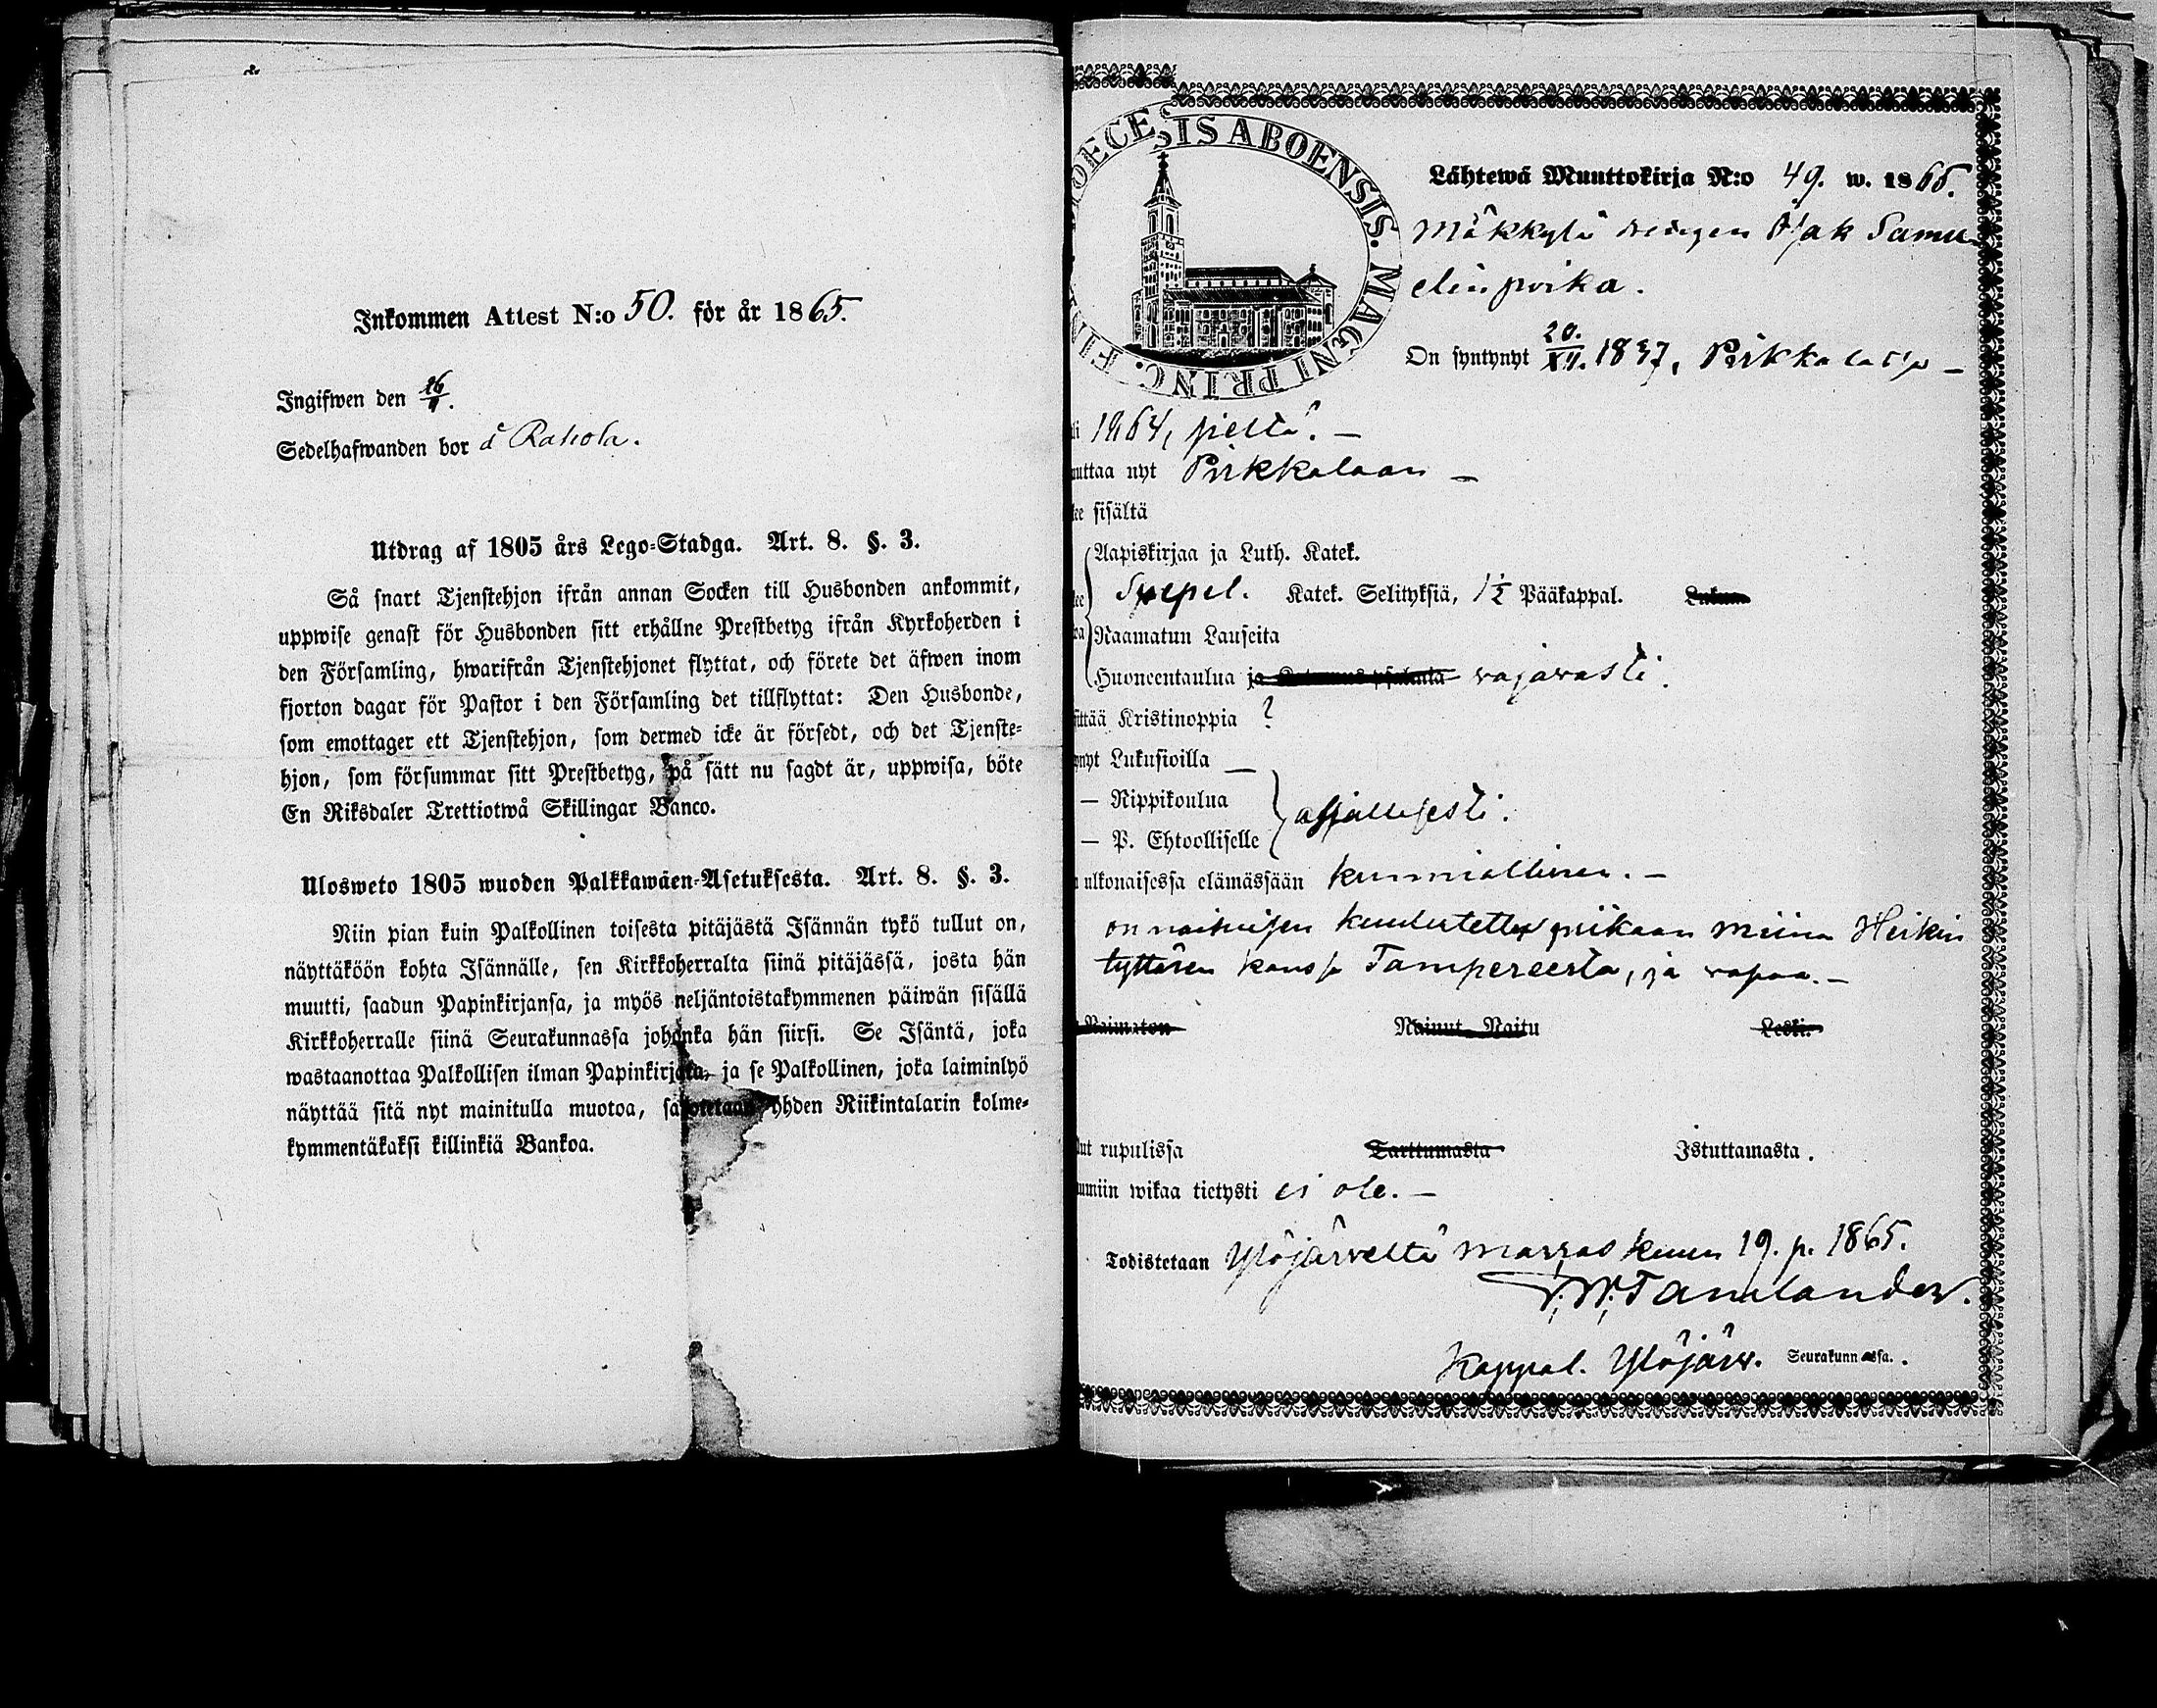 Inkommen Attest N:o 50. för år 1865.
Ingifwen den 26/11.
Sedelhafwanden bor å Rahola.
Utdrag af 1805 års Lego-Stadga. Art. 8. §. 3.
Så snart Tjenstehjon ifrån annan Socken till Husbonden ankommit,
uppwise genast för Husbonden sitt erhållne Prestbetyg ifrån Kyrkoherden i
den Församling, hwarifrån Tjenstehjonet flyttat, och förete det äfwen inom
fjorton dagar för Pastor i den Församling det tillflyttat: Den Husbonde,
som emottager ett Tjenstehjon, som dermed icke är försedt, och det Tjenste-
hjon, som försummar sitt Prestbetyg, på sätt nu sagdt är, uppwisa, böte
En Riksdaler Trettiotwå Skillingar Banco.
Ulosweto 1805 wuoden Palkkawäen-Asetuksesta. Art. 8. §. 3.
Niin pian kuin Palkollinen toisesta pitäjästä Isännän tykö tullut on,
näyttäköön kohta Isännälle, sen Kirkkoherralta siinä pitäjässä, josta hän
muutti, saadun Papinkirjansa, ja myös neljäntoistakymmenen päiwän sisällä
Kirkkoherralle siinä Seurakunnassa johonka hän siirsi. Se Isäntä, joka
wastaanottaa Palkollisen ilman Papinkirjata, ja se Palkollinen, joka laiminlyö
näyttää sitä nyt mainitulla muotoa, sakotetaan yhden Riikintalarin kolme-
kymmentäkaksi killinkiä Bankoa.
DIOECESIS ABOENSIS. MAGNI PRINC. FIN
Lähtewä Muuttokirja N:o 49. w. 1865.
Mäkkylä Isak Samu-
elinpoika.
On syntynyt 20./XII. 1837, Pirkkalassa –
1864, sieltä. –
uttaa nyt Pirkkalaan –
sisältä
Aapiskirjaa ja Luth. Katek.
Katek. Selityksiä, 1½ Pääkappal.
Naamatun Lauseita
Huoneentaulua ja wajawasti.
ittää Kristinoppia ?
ynyt Lukusioilla —
— Rippikoulua
— P. Ehtoolliselle
ahkerasti.
ulkonaisessa elämässään kunniallinen. –
on naimisen kuulutettu piikaan Miina Heikin
tyttären kanssa Tampereesta, ja wapaa. –
Naimaton Nainut Naitu Leski.
ut rupulissa Tarttumasta Istuttamasta.
umiin wikaa tietysti ei ole. –
Todistetaan Ylöjärveltä marraskuun 19. p. 1865.
Tamlander.
Kappal. Ylöjärw. Seurakunnassa.